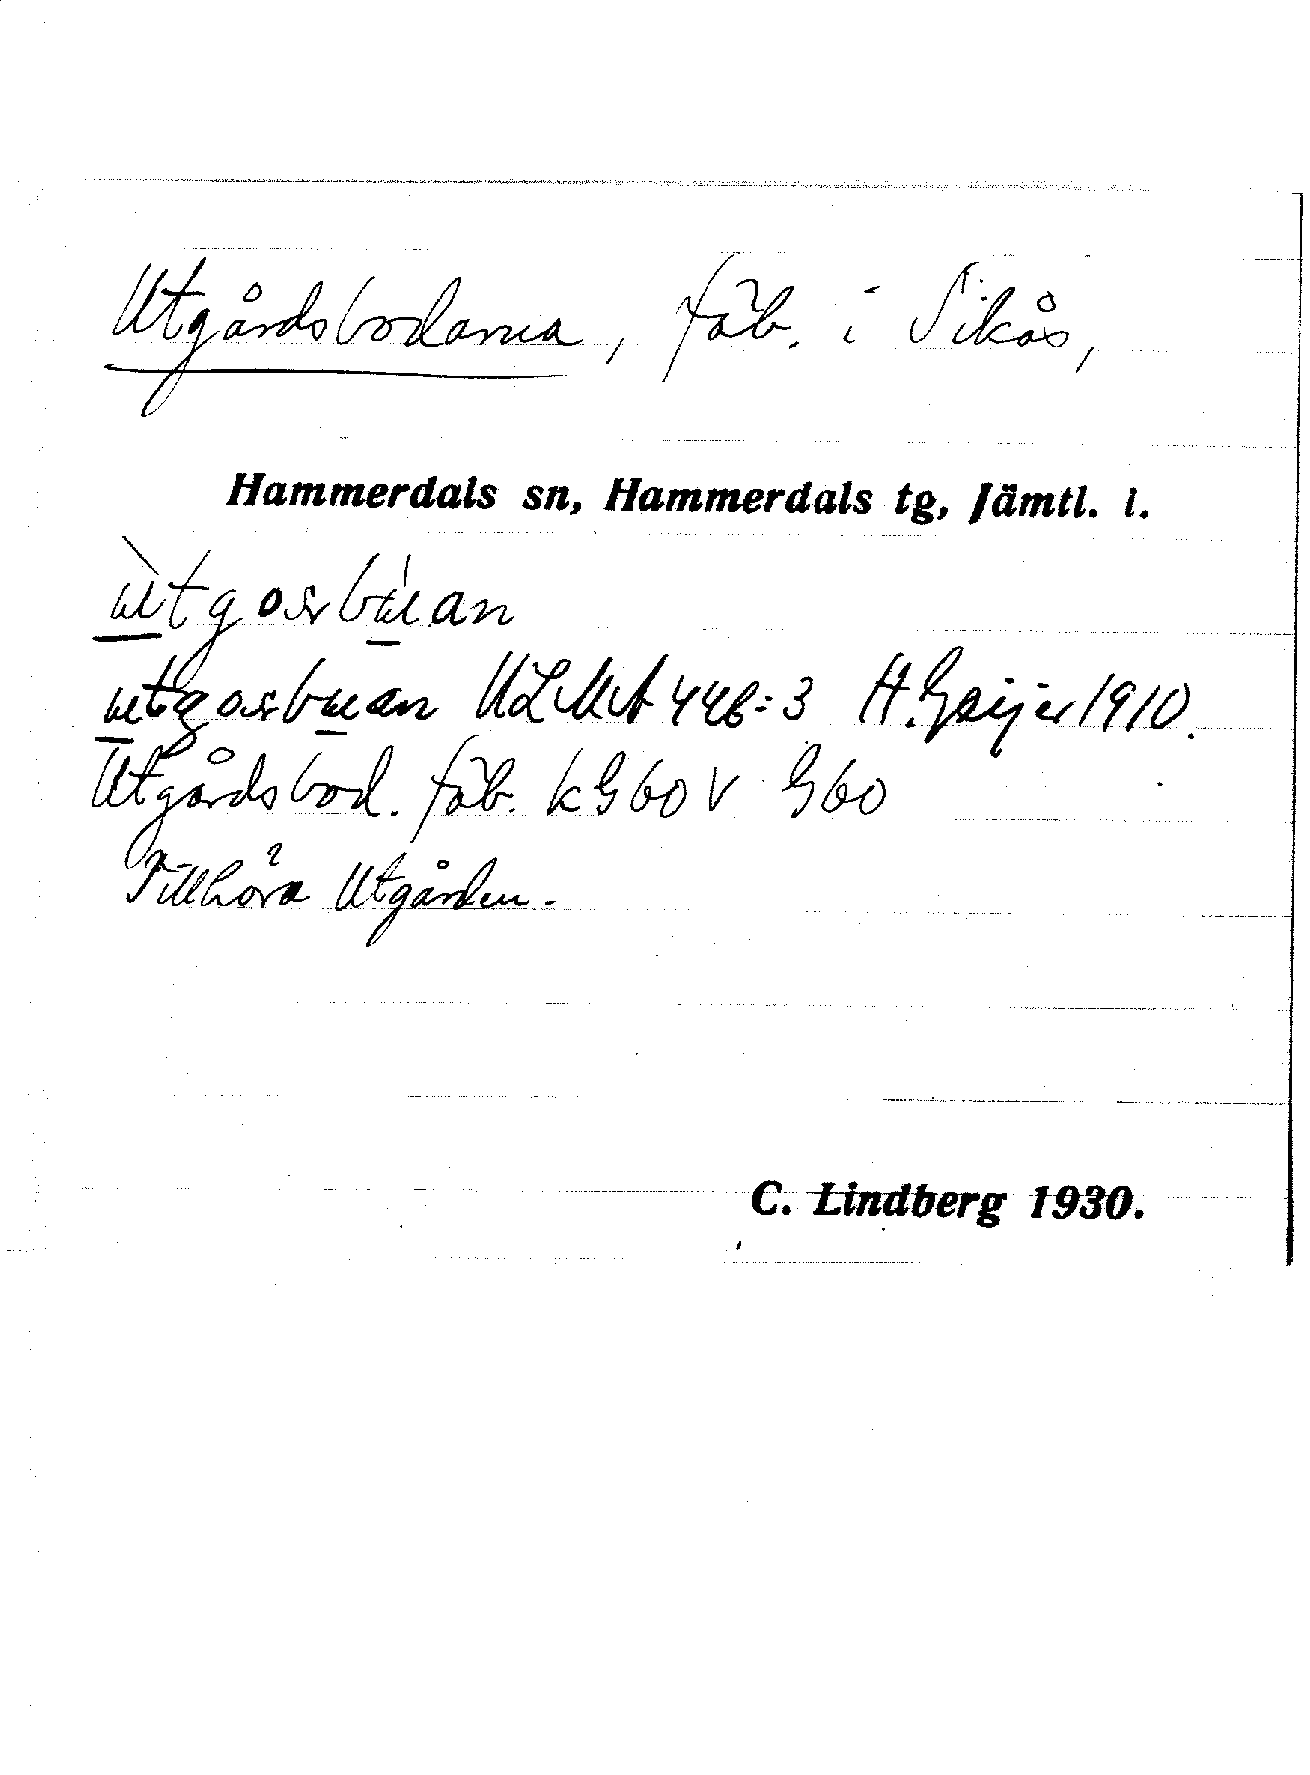 Utgårdsbodarna, fäb. i Sikås,
Hammerdals sn, Hammerdals tg, Jämtl. l.
ùtgosbúan
utgosbuan ULMA 446:3 H. Geijer 1910.
Utgårdsbod. fäb. kG60 v G60
Tillhöra Utgården.
C. Lindberg 1930.